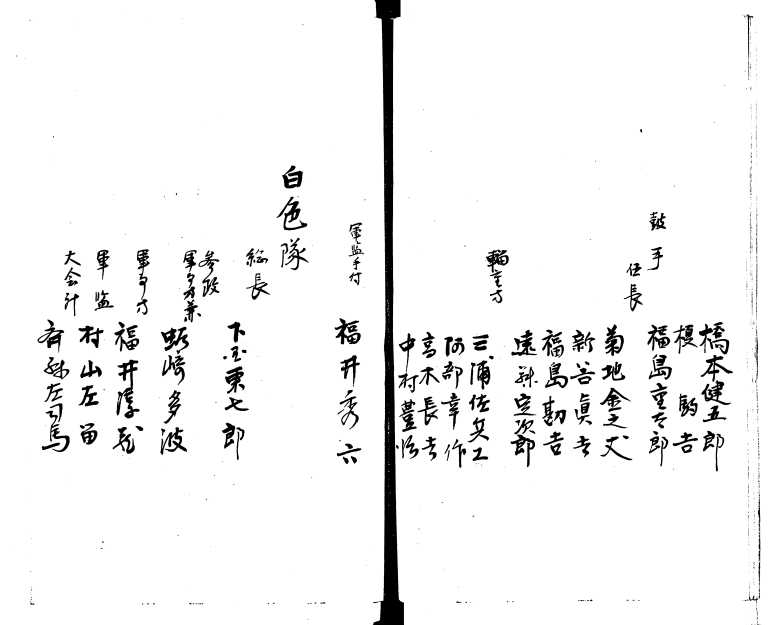 橋本健五郎
榎 劇吉
鼓手 伍長 福島重太郎
菊地金之丈
新谷眞吉
福島勘吉
遠藤定次郎
輜重方 三浦佐矢工
阿部幸作
高木長吉
中村豊治
軍監手付 福井秀六
白色隊
総長 下国東七郎
参政 軍事方兼 蛎崎多浪
軍事方 福井淳
軍監 村山左
大会計 斉藤左司馬